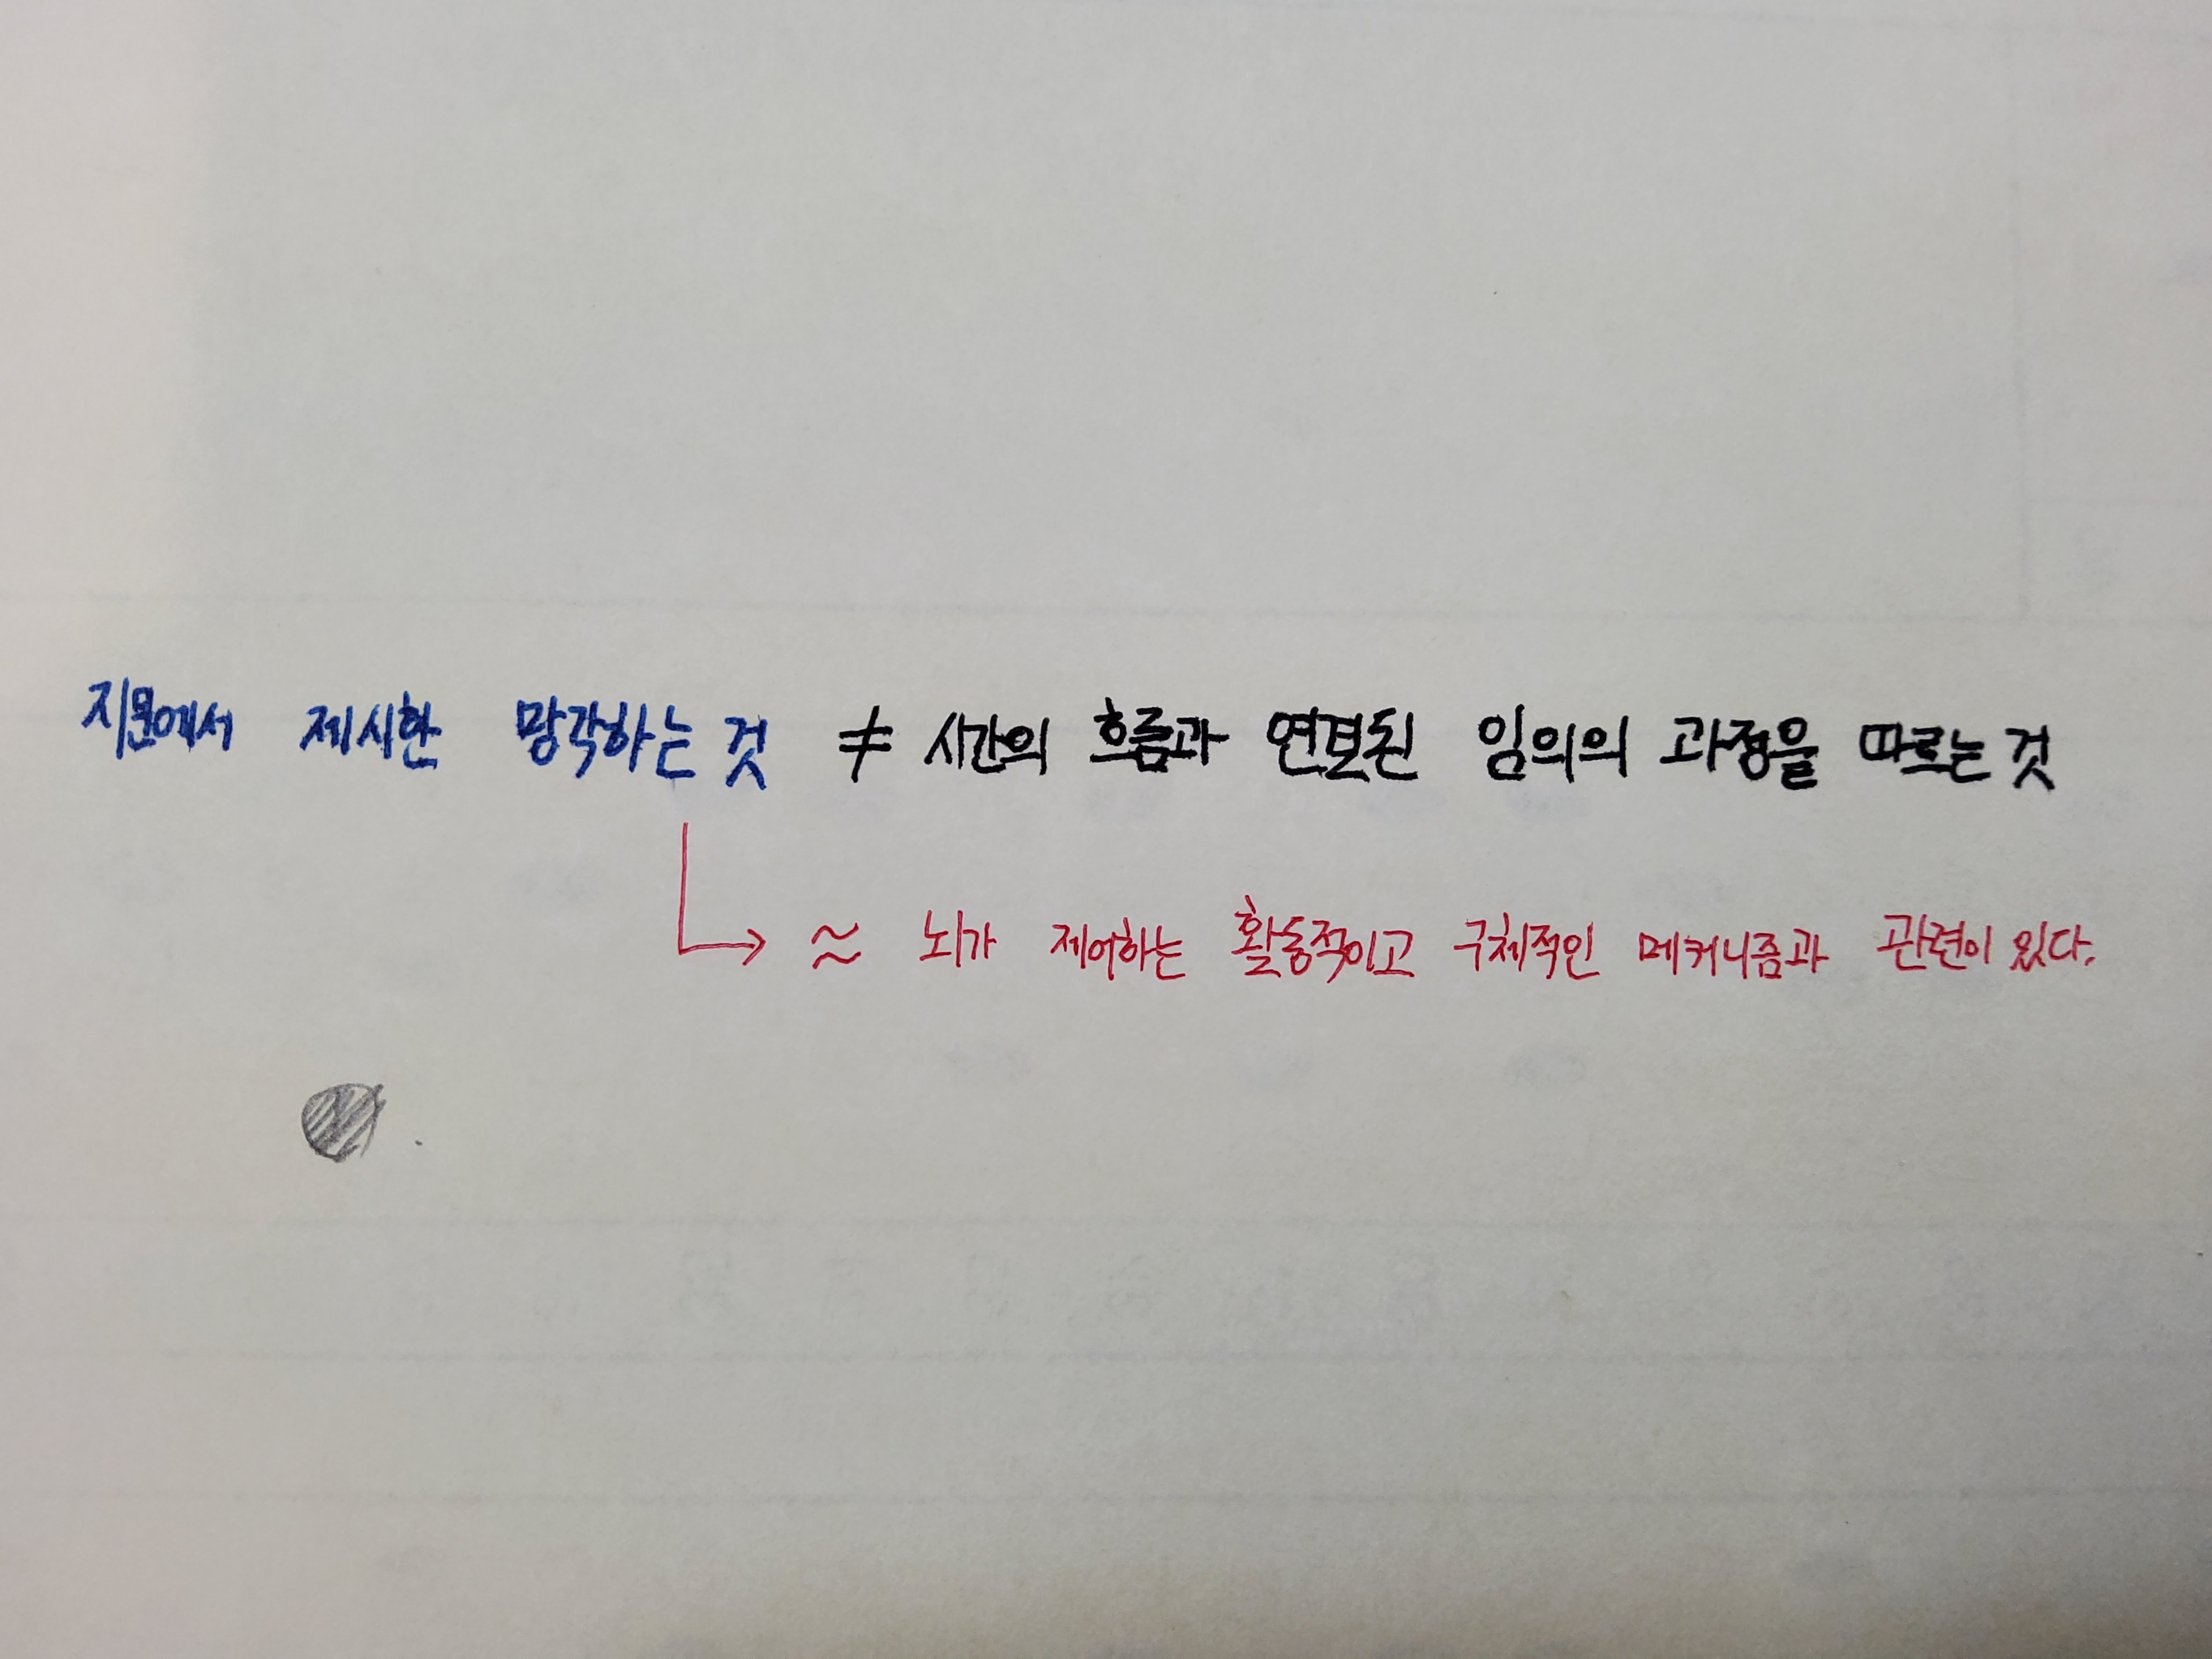 지문에서 제시한 망각하는 것 ≠ 시간의 흐름과 연결된 임의의 과정을 따르는 것
→ ≈ 뇌가 제어하는 활동적이고 구체적인 메커니즘과 관련이 있다.